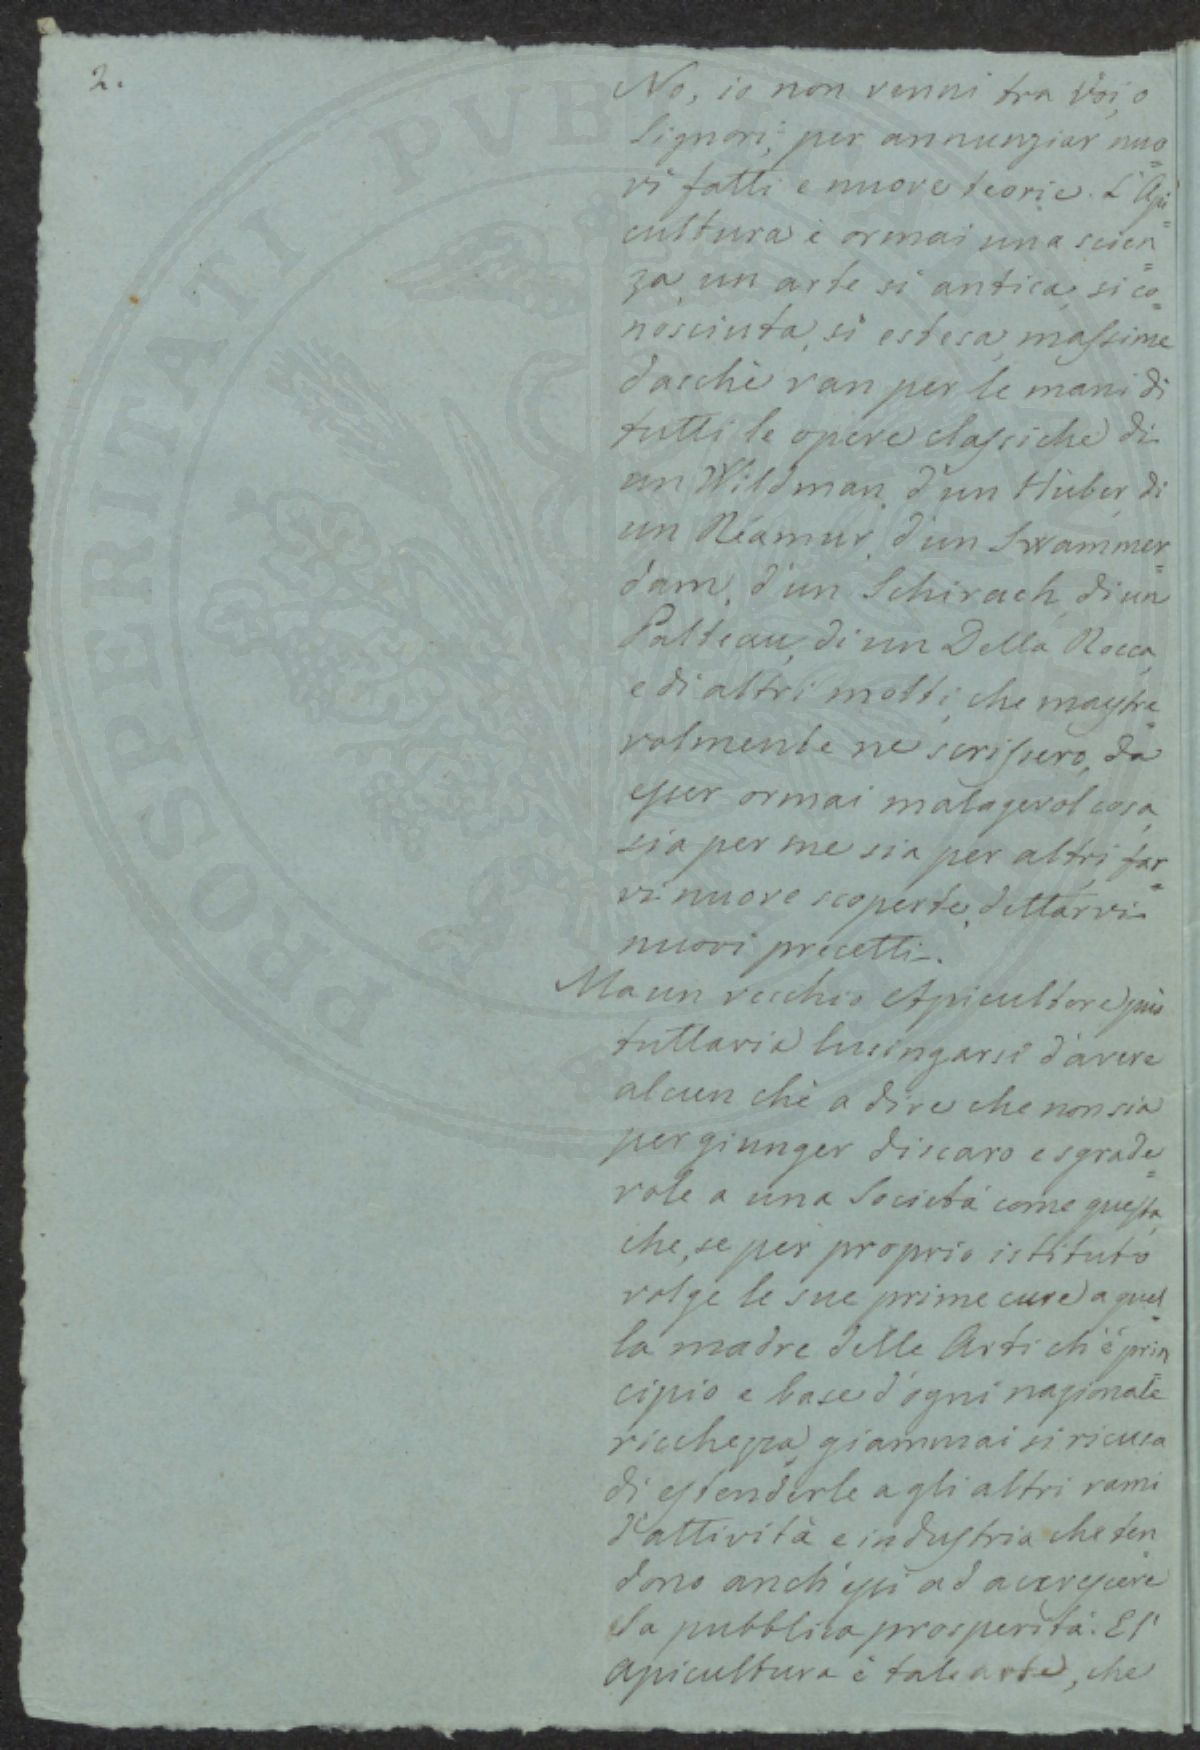 2.
No, io non venni tra Voi, o
Signori, per annunziar nuo=
vi fatti e nuove teorie. L'Api=
cultura è ormai una scien=
za, un arte sì antica, sì co=
nosciuta, sì estesa, massime
dacchè van per le mani di
tutti le opere classiche di
un Wildman, d'un Hüber, di
un Réamur, d'un Swammer=
dam, d'un Schirach, di un
Palteau, di un Della Rocca,
e di altri molti, che maestre=
volmente ne scrissero, da
esser ormai malagevol cosa,
sia per me sia per altri, far=
vi nuove scoperte, dettarvi
nuovi precetti.
Ma un vecchio Apicultore può
tuttavia lusingarsi d'avere
alcun chè a dire che non sia
per giunger discaro e sgrade=
vole a una Società come questa,
che, se per proprio istituto
volge le sue prime cure a quel=
la madre delle Arti ch'è prin=
cipio e base d'ogni nazionale
ricchezza, giammai si ricusa
di estenderle agli altri rami
d'attività e industria che ten
dono anch'essi ad accrescere
la pubblica prosperità. E l'
apicultura è tale arte, che
PROSPERITATI PVBLICAE